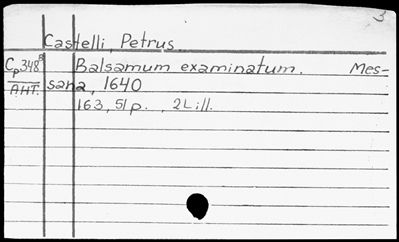 3
Castelli, Petrus
Cp348B Balsamum examinatum. Mes-
AHT. sana, 1640
163, 51 p. , 2 L ill.